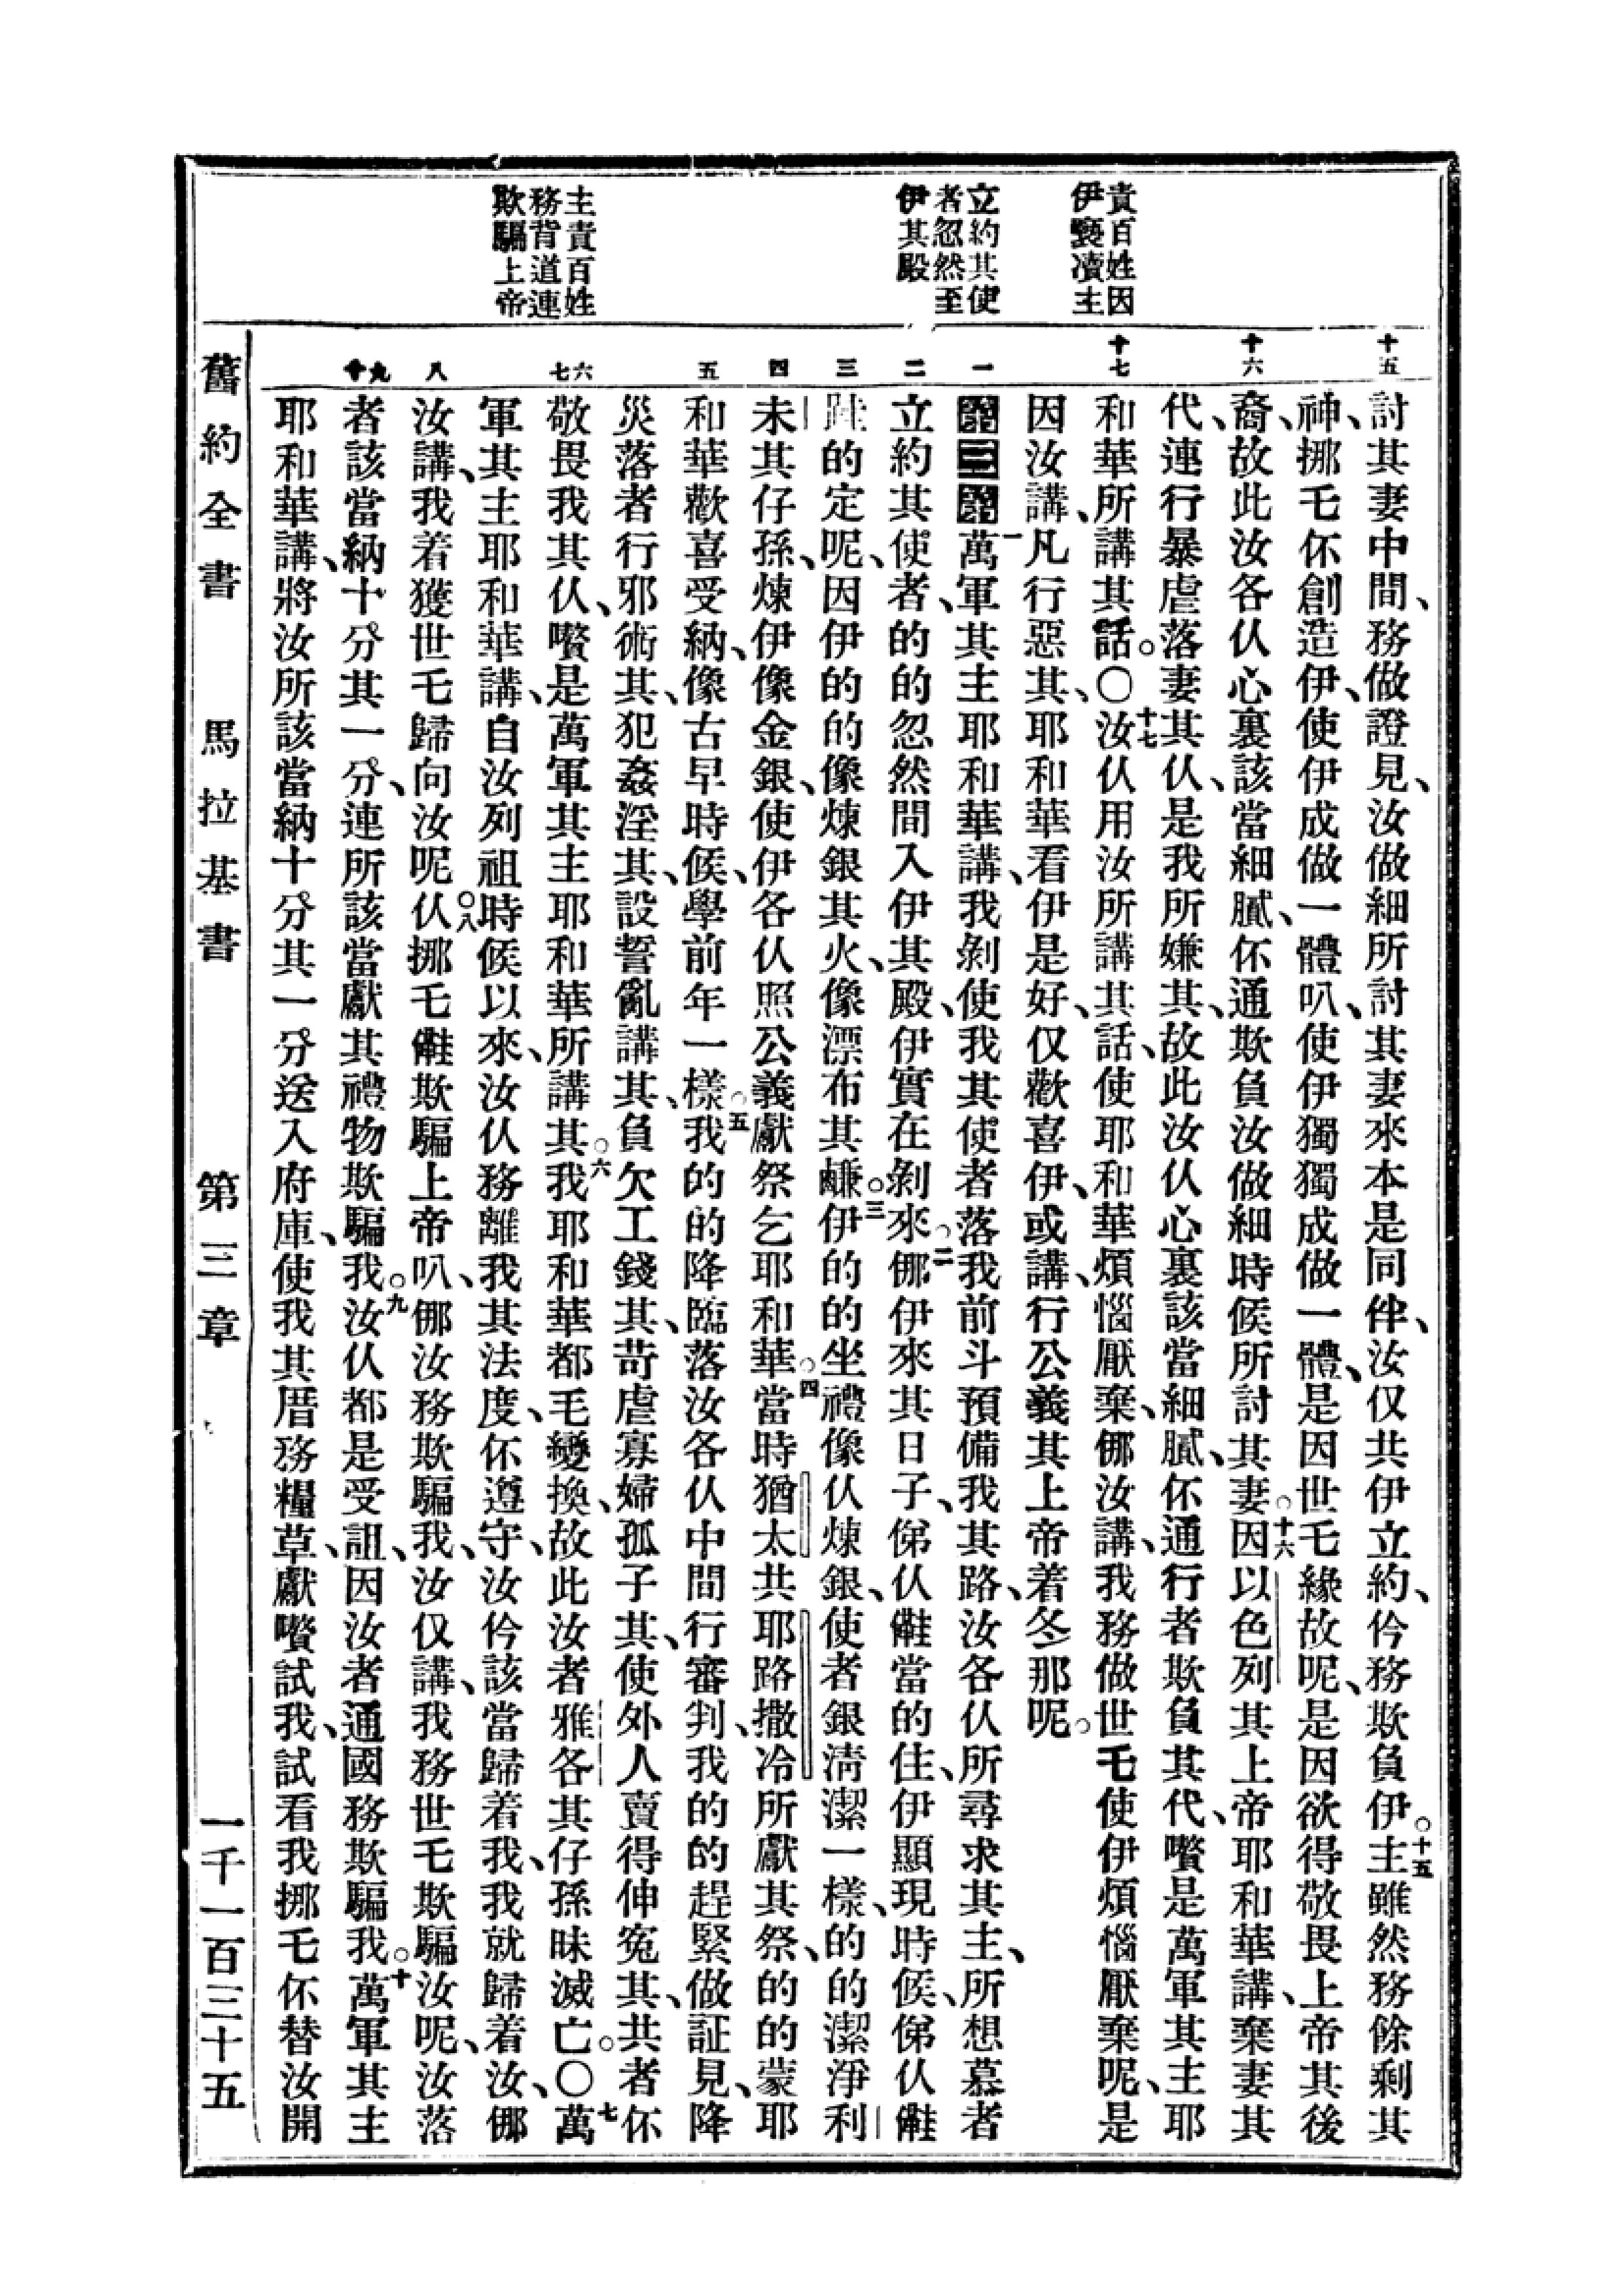 責百姓因
伊褻瀆主
立約其使
者忽然至
伊其殿
主責百姓
務背道連
欺騙上帝
十五
十六
十七
一
二
三
四
五
六
七
八
九
十
討其妻中間、務做證見、汝做細所討其妻來本是同伴、汝仅共伊立約、仱務欺負伊。十五主雖然務餘剩其
神、挪乇伓創造伊、使伊成做一體叭、使伊獨獨成做一體、是因世乇緣故呢、是因欲得敬畏上帝其後
裔、故此汝各仈心裏該當細膩、伓通欺負汝做細時候所討其妻。十六因以色列其上帝耶和華講、棄妻其
代、連行暴虐落妻其仈、是我所嫌其、故此汝仈心裏該當細膩、伓通行者欺負其代、嚽是萬軍其主耶
和華所講其話。〇十七汝仈用汝所講其話、使耶和華煩惱厭棄、㑚汝講、我務做世乇使伊煩惱厭棄呢、是
因汝講、凡行惡其、耶和華看伊是好、仅歡喜伊、或講、行公義其上帝着冬那呢。
第三章一萬軍其主耶和華講、我剝使我其使者落我前斗預備我其路、汝各仈所尋求其主、所想慕者
立約其使者、的的忽然間入伊其殿、伊實在剝來。二㑚伊來其日子、俤仈䧹當的住、伊顯現時候、俤仈䧹
䟴的定呢、因伊的的像煉銀其火、像漂布其鹻。三伊的的坐禮像仈煉銀、使者銀清潔一樣、的的潔淨利
未其仔孫、煉伊像金銀、使伊各仈照公義獻祭乞耶和華。四當時猶太共耶路撒冷所獻其祭、的的蒙耶
和華歡喜受納、像古早時候、學前年一樣。五我的的降臨落汝各仈中間行審判、我的的趕緊做証見、降
災落者行邪術其、犯姦淫其、設誓亂講其、負欠工錢其、苛虐寡婦孤子其、使外人賣得伸寃其、共者伓
敬畏我其仈、嚽是萬軍其主耶和華所講其。六我耶和華都毛變換、故此汝者雅各其仔孫昧滅亡。〇七萬
軍其主耶和華講、自汝列祖時候以來、汝仈務離我其法度、伓遵守、汝仱該當歸着我、我就歸着汝、㑚
汝講、我着獲世乇歸向汝呢。八仈挪乇䧹欺騙上帝叭、㑚汝務欺騙我、汝仅講、我務世乇欺騙汝呢、汝落
者該當納十分其一分、連所該當獻其禮物欺騙我。九汝仈都是受詛、因汝者通國務欺騙我。十萬軍其主
耶和華講、將汝所該當納十分其一分送入府庫、使我其厝務糧草、獻嚽試我、試看我挪乇伓替汝開
舊約全書 馬拉基書 第三章 一千一百三十五